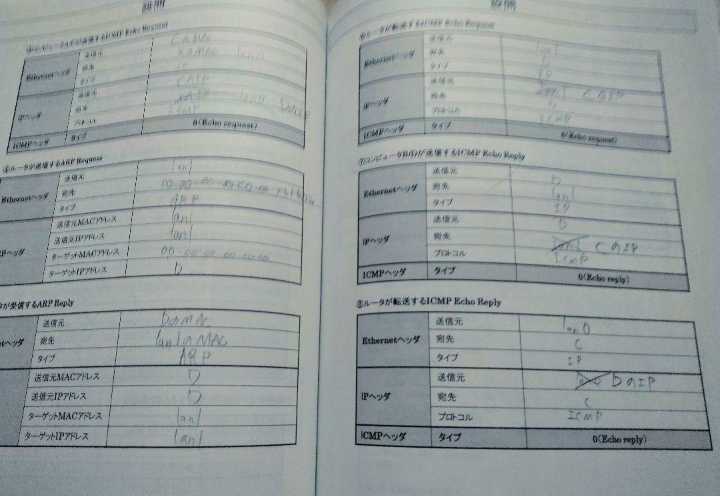 設問
Ethernetヘッダ
送信元
宛先
タイプ
IPヘッダ
送信元
宛先
プロトコル
ICMP
ICMPヘッダ タイプ 0(Echo request)
④ルータが送信するARP Request
Ethernetヘッダ
送信元 lan1
宛先
タイプ ARP
送信元MACアドレス lan1
送信元IPアドレス lan1
ターゲットMACアドレス 00-00-00-00-00-00
ターゲットIPアドレス D
が受信するARP Reply
送信元
宛先
タイプ ARP
送信元MACアドレス D
送信元IPアドレス D
ターゲットMACアドレス lan1
ターゲットIPアドレス lan1
設問
⑥ルータが転送するICMP Echo Request
Ethernetヘッダ
送信元 lan1
宛先 D
タイプ IP
IPヘッダ
送信元 CのIP
宛先 D
プロトコル ICMP
ICMPヘッダ タイプ 0(Echo request)
⑦コンピュータB(D)が送信するICMP Echo Reply
Ethernetヘッダ
送信元 D
宛先 lan1
タイプ IP
IPヘッダ
送信元 D
宛先 CのIP
プロトコル ICMP
ICMPヘッダ タイプ 0(Echo reply)
⑧ルータが転送するICMP Echo Reply
Ethernetヘッダ
送信元 lan0
宛先 C
タイプ IP
IPヘッダ
送信元 DのIP
宛先 C
プロトコル ICMP
ICMPヘッダ タイプ 0(Echo reply)